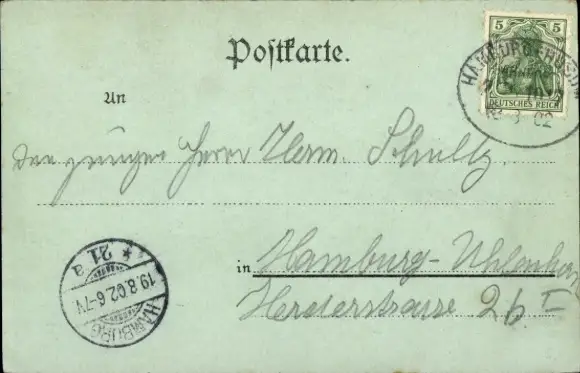 Postkarte.
5 5
DEUTSCHES REICH
HAMBURG
02
An
Den jungen Herrn Herm. Schultz.
in Hamburg-Uhlenhorst
Herderstrasse 26 I
* 21 a
19.8.02.6-7V
HAMBURG